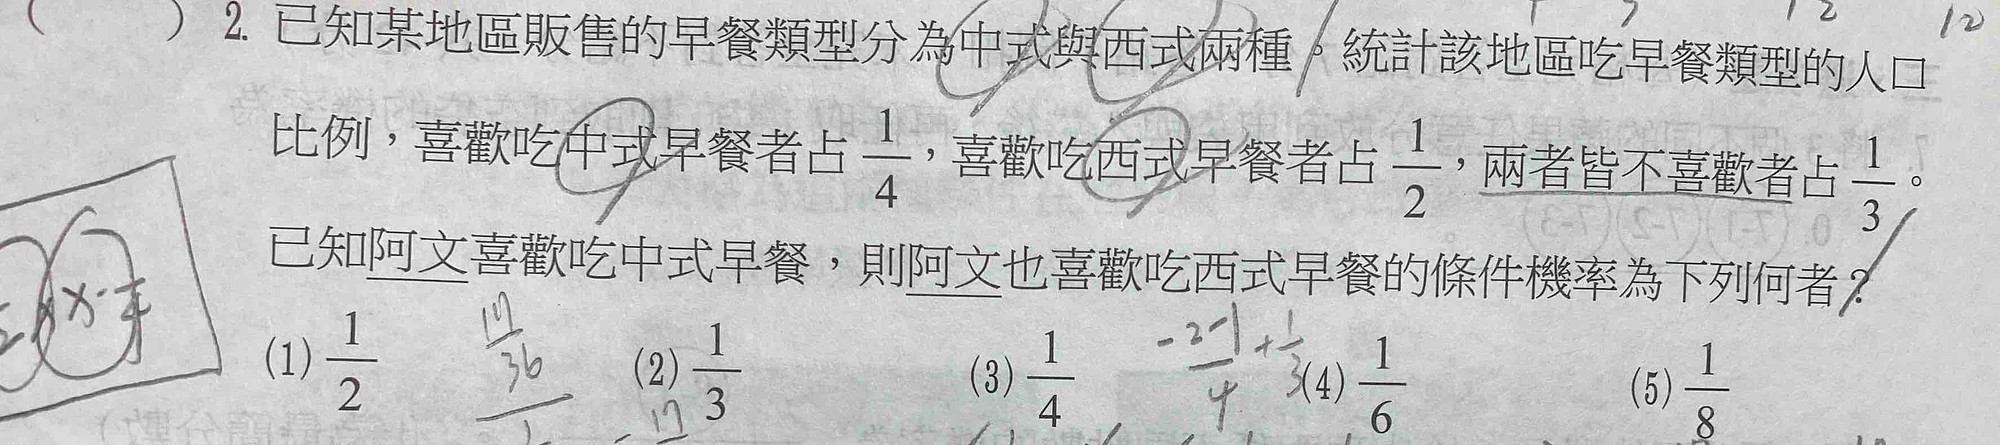 ( ) 2. 已知某地區販售的早餐類型分為中式與西式兩種。統計該地區吃早餐類型的人口
比例，喜歡吃中式早餐者占 1/4，喜歡吃西式早餐者占 1/2，兩者皆不喜歡者占 1/3。
已知阿文喜歡吃中式早餐，則阿文也喜歡吃西式早餐的條件機率為下列何者？
(1) 1/2 (2) 1/3 (3) 1/4 (4) 1/6 (5) 1/8